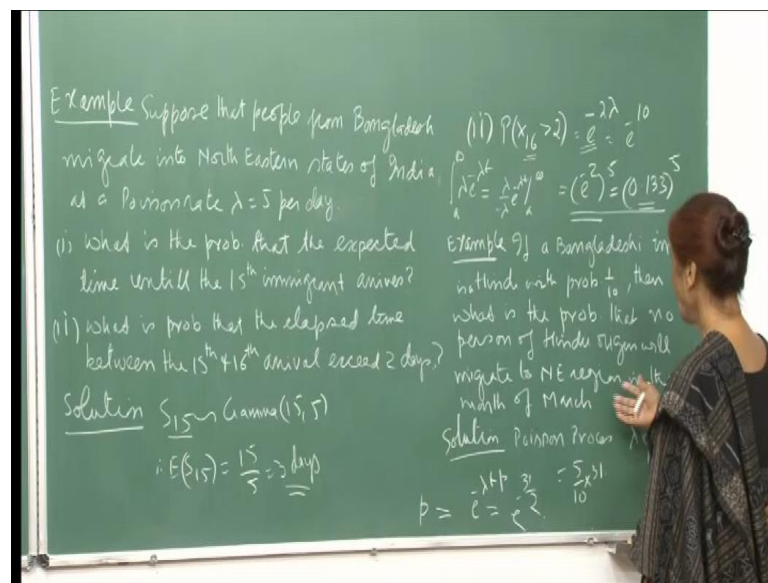 Example Suppose that people from Bangladesh
migrate into North Eastern states of India
at a Poisson rate λ = 5 per day.
(i) What is the prob. that the expected
time untill the 15th immigrant arrives?
(ii) What is prob that the elapsed time
between the 15th & 16th arrival exceed 2 days?
Solution S15 ~ Gamma(15, 5)
∴ E(S15) = 15/5 = 3 days
(ii) P(X16 > 2) = e^-2λ = e^-10
∫ λe^-λt = λ/-λ e^-λt |a^∞ = (e^-2)^5 = (0.133)^5
Example If a Bangladeshi im
is Hindu with prob 1/10, then
what is the prob. that no
person of Hindu origin will
migrate to NE region in th
month of March
Solution Poisson Process λ
= 5/10 × 31
p = e^-λtp = e^-31/2